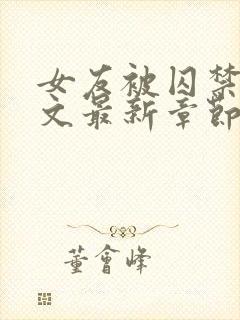 女友被囚禁
文最新章節
董會峰